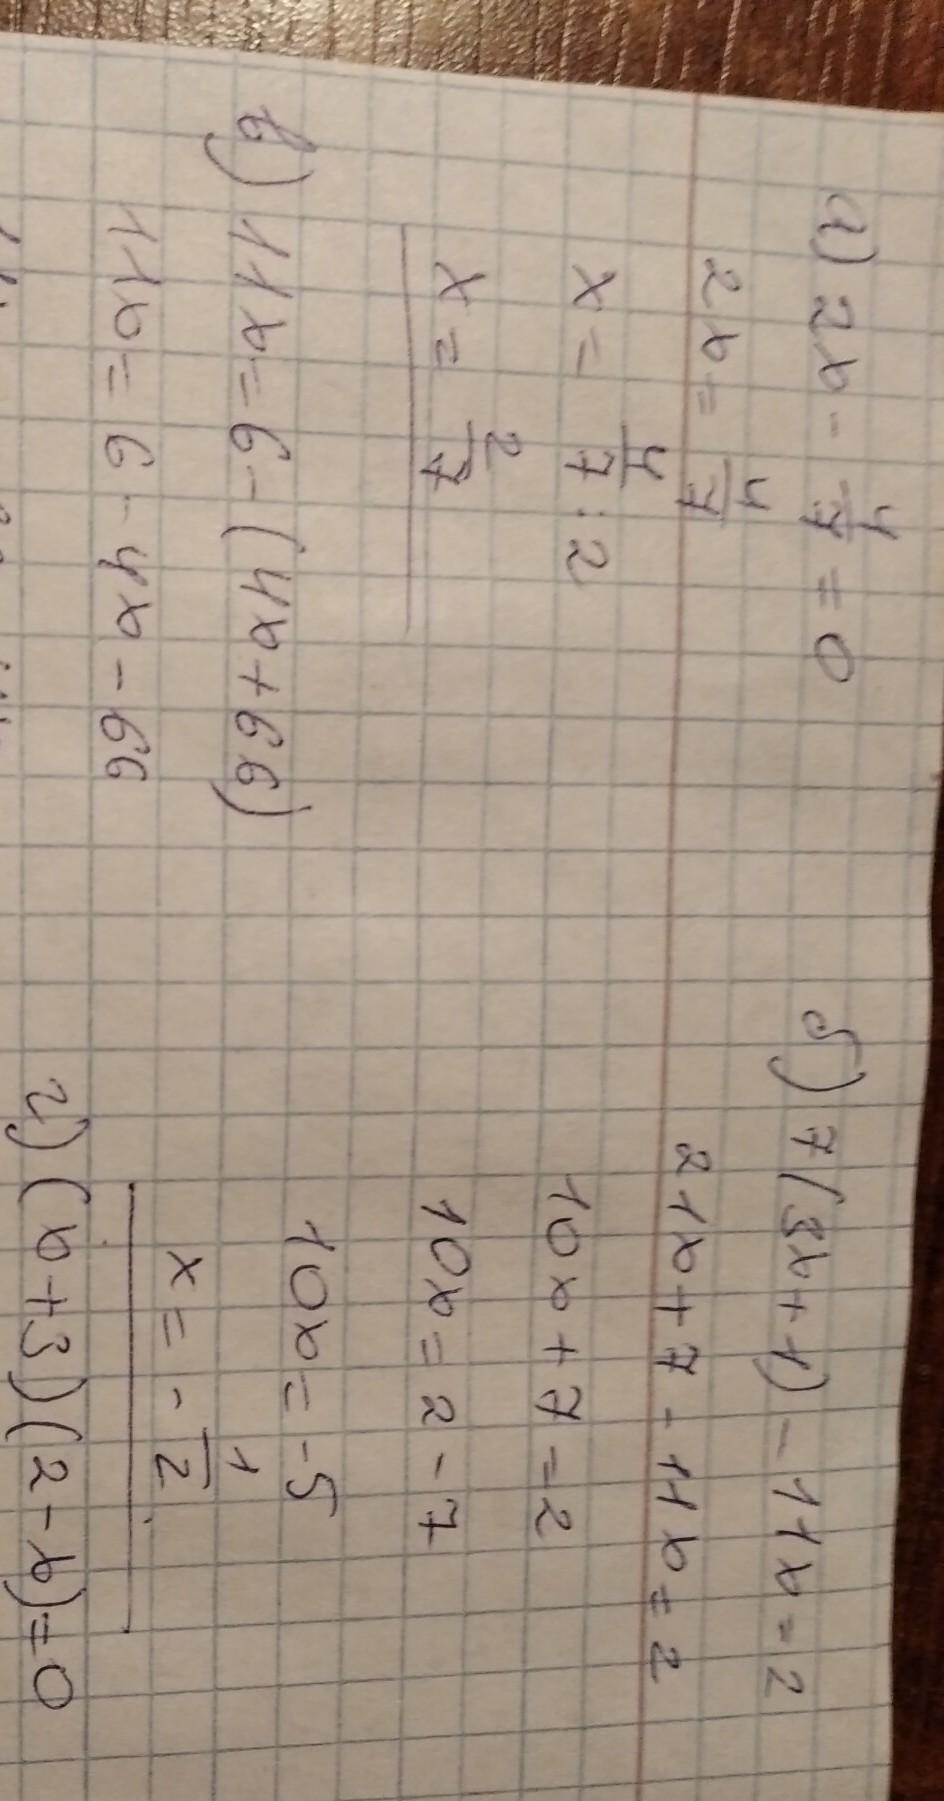 а) 2x - 4/7 = 0
2x = 4/7
x = 4/7 : 2
x = 2/7
б) 7(3x+1) - 11x = 2
21x + 7 - 11x = 2
10x + 7 = 2
10x = 2 - 7
10x = -5
x = - 1/2
в) 11x = 6 - (4x + 66)
11x = 6 - 4x - 66
г) (x+3)(2-x) = 0